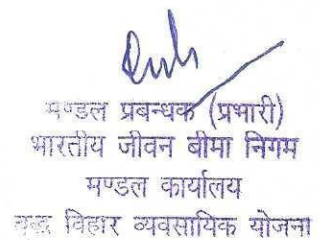 मण्डल प्रबन्धक (प्रभारी)
भारतीय जीवन बीमा निगम
मण्डल कार्यालय
बुद्ध विहार व्यवसायिक योजना